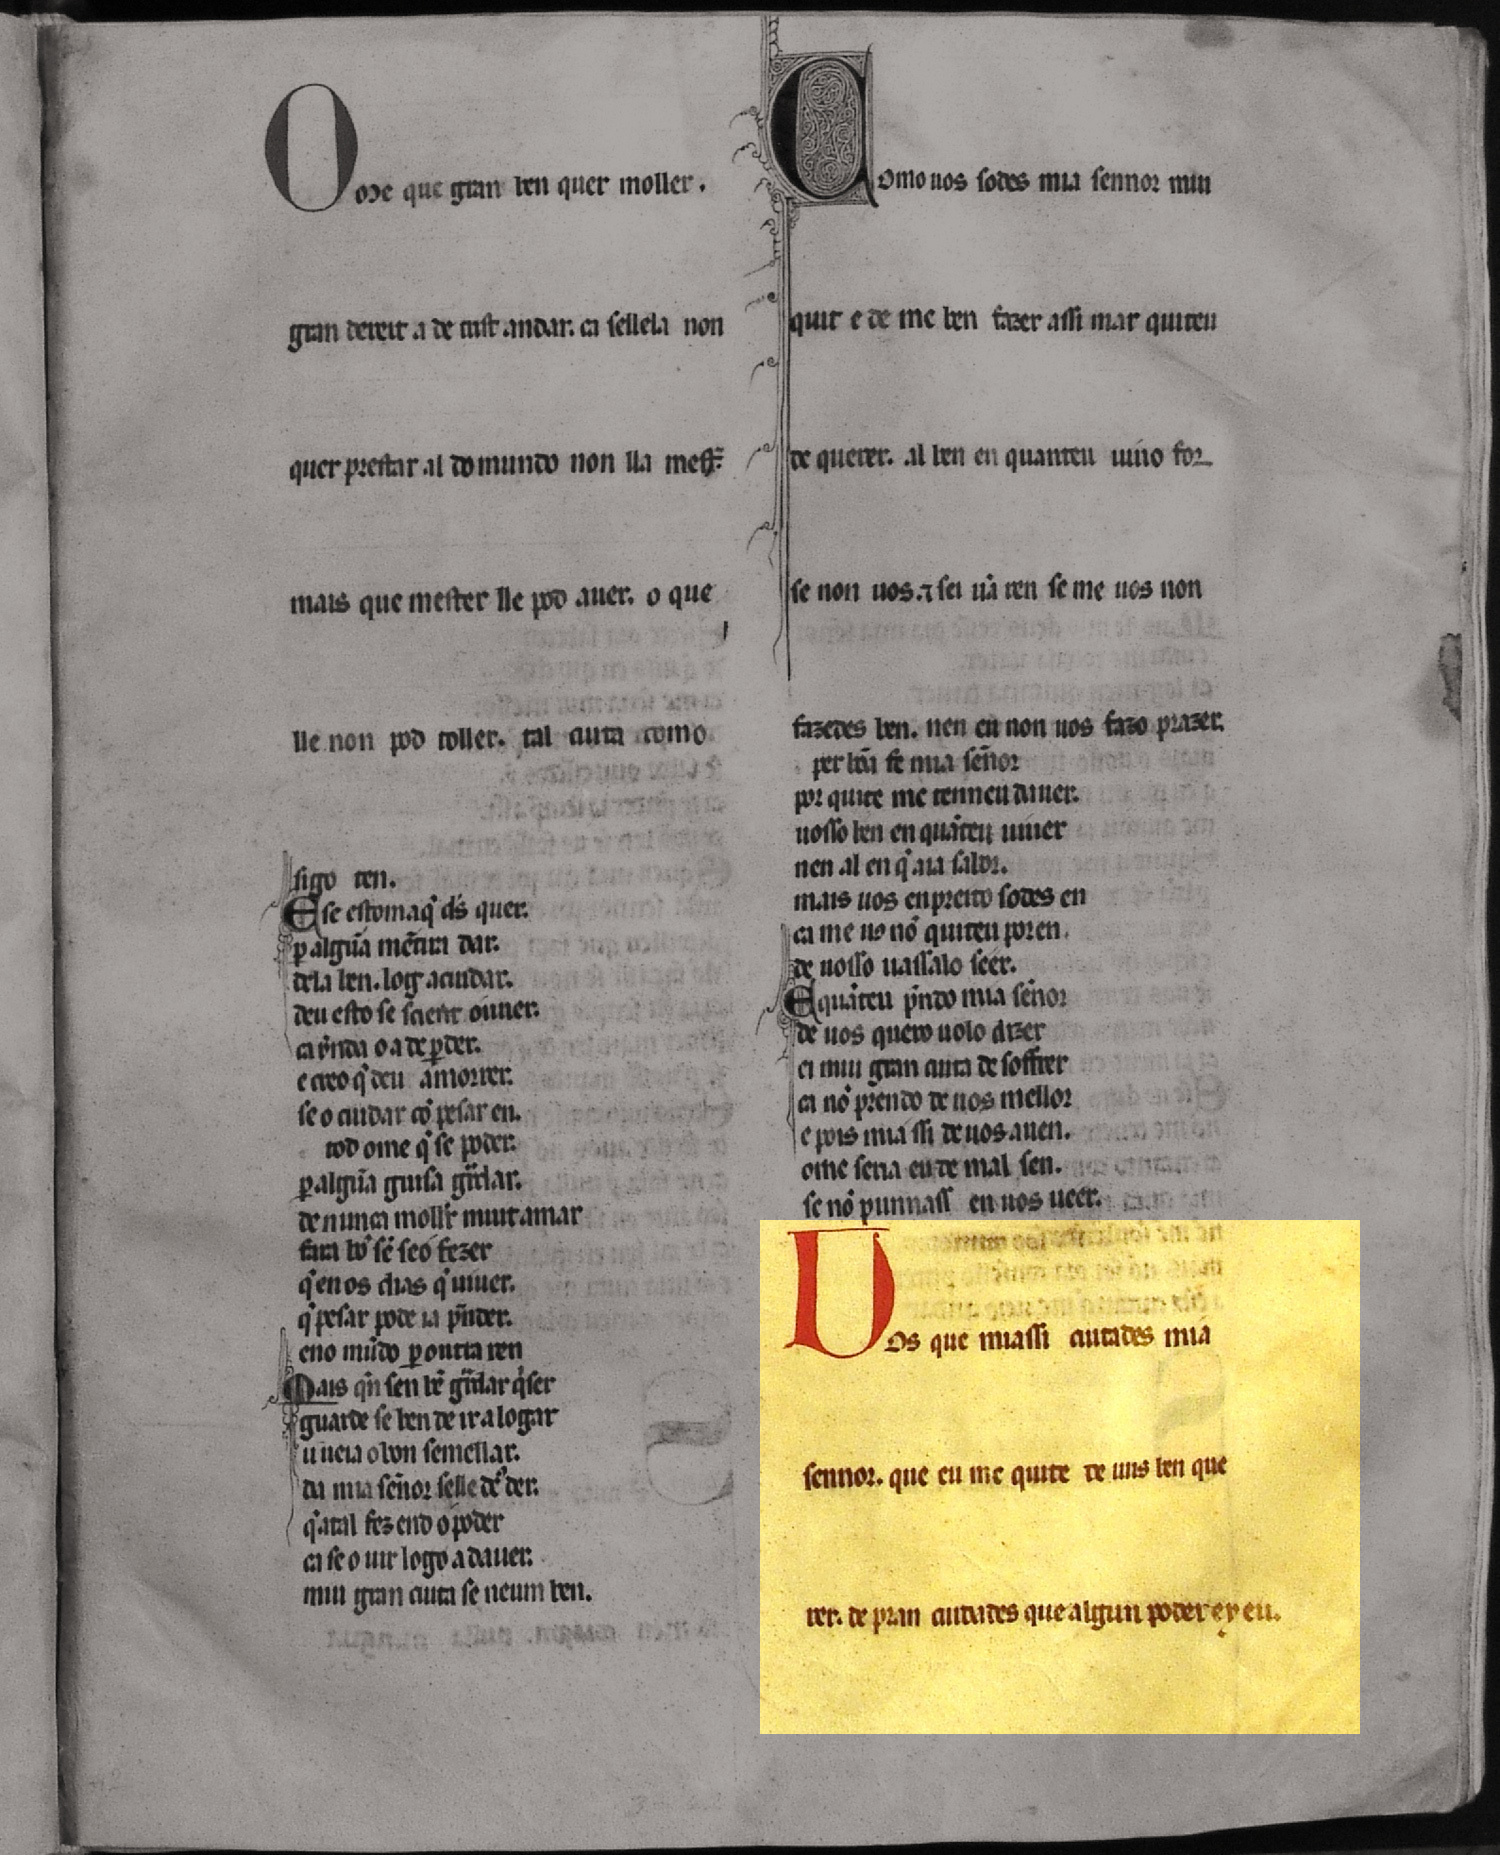 Ome que gran ben quer moller.
gran dereit a de trist andar. ca sellela non
quer prestar al do mundo non lla mest̄.
mais que mester lle pod auer. o que
lle non pod toller. tal cuita como
sigo ten.
E se esto maq̇ ds̄ quer.
ꝑ algũa mẽtira dar.
dela ben. log a cuidar.
deu esto se sa en ouuer.
ca o a de ꝑder.
e creo q̇ deu a morrer.
se o cuidar cõ pesar en.
tod ome q̇ se poder.
ꝑ algũa guisa gũdar.
de nunca moll̄r muit amar
fara bõ sẽ seo fezer
q̇ enos dias q̇ uiuer.
q̇ pesar pode ia p̃nder.
eno mũdo ꝑ outra ren
Mais q̃n sen bẽ gũdar q̇ser
guarde se ben de ir a logar
u ueia o bon semellar.
da mia señor selle d̄s der.
q̇ atal fez end o poder
ca se o uir logo a dauer.
mui gran cuita se neum ben.
Como uos sodes mia sennor mui
quit e de me ben fazer assi mar quiteu
de querer. al ben en quanteu uiuo for
se non uos. ⁊ sei ũa ren se me uos non
fazedes ben. nen eu non uos fazo prazer.
per bõa fe mia señor
por quite me tenneu dauer.
uosso ben en quãteu uiuer
nen al en q̇ aia sabor.
mais uos en preito sodes en
ca me uo nõ quiteu poren.
de uosso uassalo seer.
E quãteu p̃ndo mia señor
de uos quero uolo dizer
ei mui gran cuita de soffrer
ca nõ prendo de uos mellor
e pois mia ssi de uos auen.
ome seria eu de mal sen.
se nõ punnass en uos ueer.
Uos que miassi cuitades mia
sennor. que eu me quite de uus ben que
rer. de pran cuidades que algun poder ey eu.